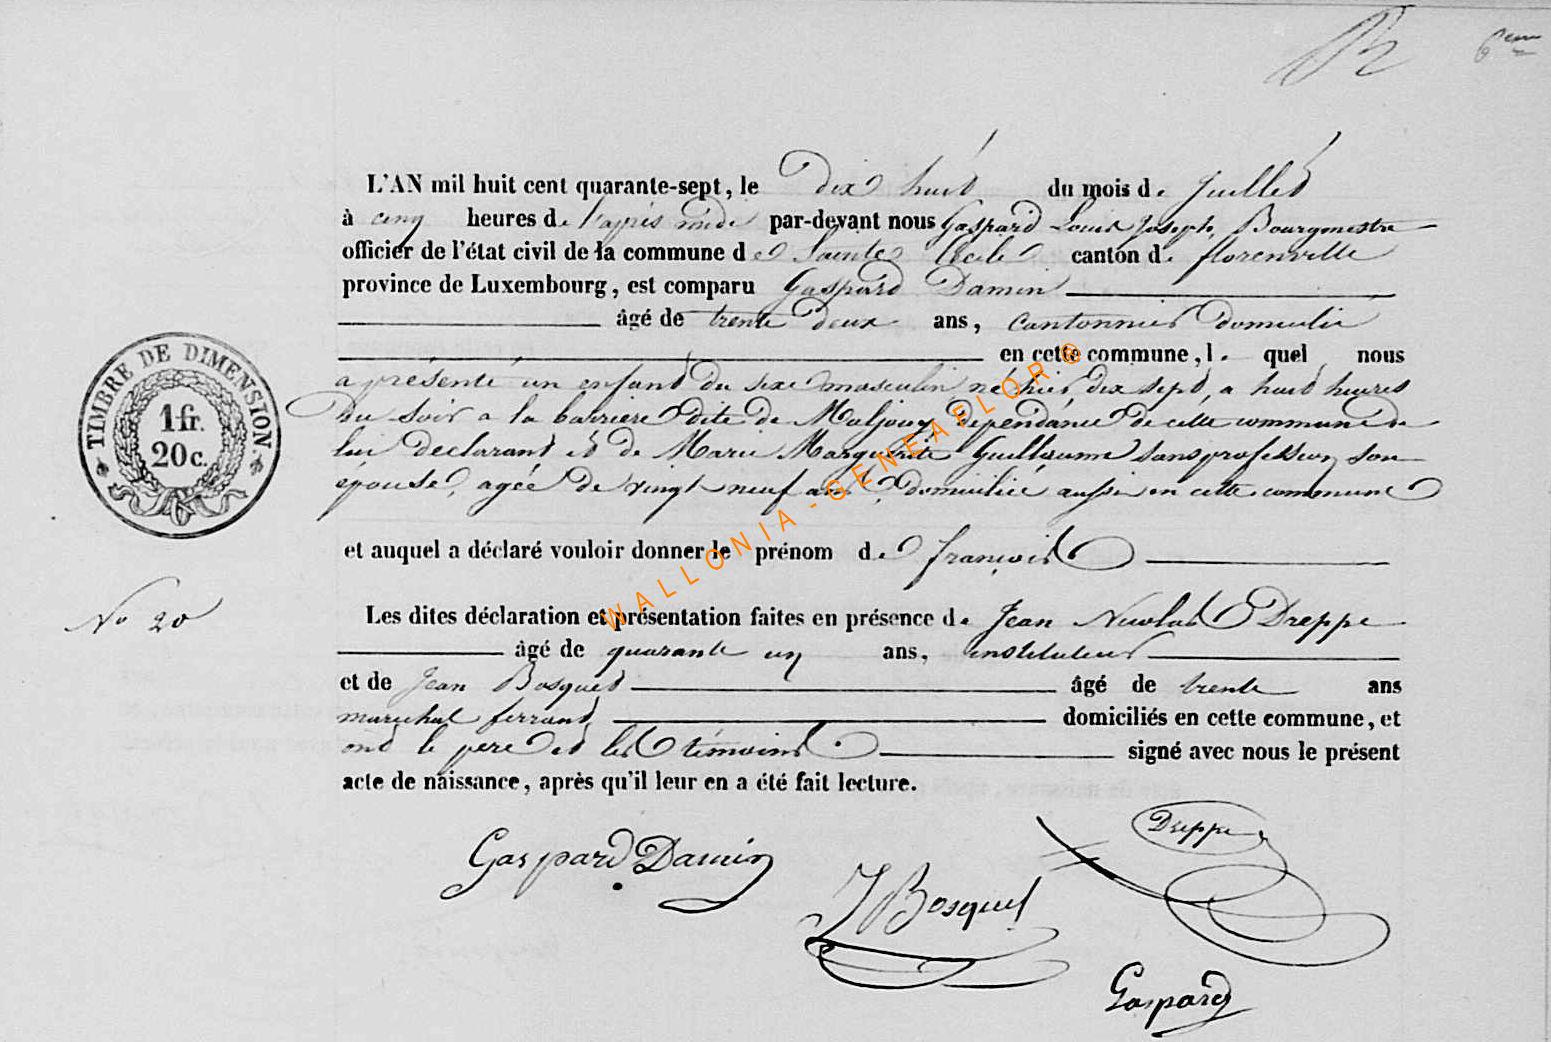 6eme
L'AN mil huit cent quarante-sept, le dix huit du mois de Juillet
à cinq heures de l'après midi par-devant nous Gaspard Louis Joseph, Bourgmestre
officier de l'état civil de la commune de Sainte Cécile canton de florenville
province de Luxembourg, est comparu Gaspard Damin
âgé de trente deux ans, cantonnier domicilié
en cette commune, lequel nous
a présenté un enfant du sexe masculin né hier, dix sept, a huit heures
du soir a la barriere dite de Maljouy, dépendance de cette commune de
lui declarant et de Marie Marguerite Guillaume sans profession, son
épouse, agée de vingt neuf ans, domiciliée aussi en cette commune
et auquel a déclaré vouloir donner le prénom de françois
No 20
Les dites déclaration et présentation faites en présence de Jean Nicolas Dreppe
âgé de quarante un ans, instituteur
et de Jean Bosquet âgé de trente ans
marechal ferrant, domiciliés en cette commune, et
ont le pere et les témoins signé avec nous le présent
acte de naissance, après qu'il leur en a été fait lecture.
Dreppe
Gaspard Damin
J Bosquet
Gaspard
TIMBRE DE DIMENSION.
1 fr.
20 c.
WALLONIA - GENEAFLOR ©